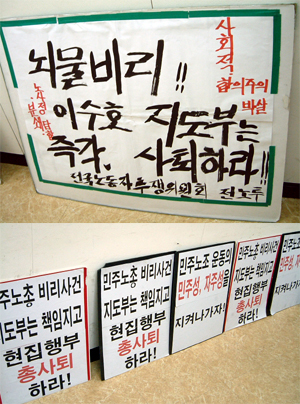 사회적·
합의주의
박살
뇌물비리!!
이수호 지도부는
즉각, 사퇴하라!!
전국노동자투쟁위원회 전노투
주노총 비리사건
지도부는 책임지고
현집행부
총사퇴
하라!
민주노총 비리사건
지도부는 책임지고
현집행부
총사퇴
하라!
민주노조 운동의
민주성, 자주성을
지켜나가자!
민주노총 비리사건
지도부는 책임지고
현집행부
총사퇴
하라!
민주노조
민주성, 자
지켜나